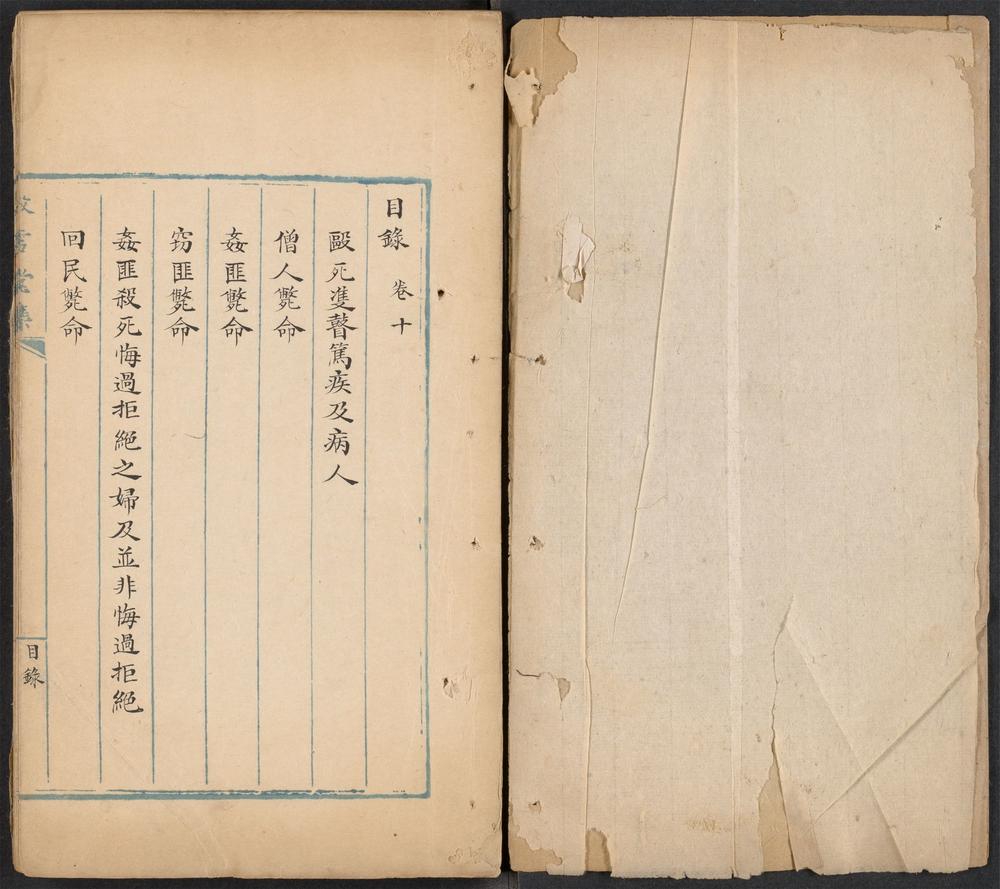 目錄 卷十
毆死雙瞽篤疾及病人
僧人斃命
姦匪斃命
竊匪斃命
姦匪殺死悔過拒絕之婦及並非悔過拒絕
回民斃命
目錄